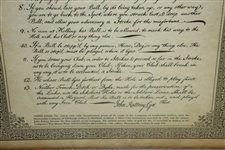 8. If you should lose your Ball, by its being taken up, or any other way,
you are to go back to the Spot, where you struck last, & drop another
Ball, and allow your adversary a Stroke for the misfortune.
9. No man at Holling his Ball, is to be allowed, to mark his way to the
Hole with his Club or any thing else.
10. If a Ball be stopp'd by any person, Horse, Dog, or any thing else, The
Ball so stop'd must be played where it lyes.
11. If you draw your Club, in order to Strike & proceed so far in the Stroke, as
to be bringing down your Club; If then, your Club shall break, in
any way, it is to be accounted a Stroke.
12. He whose Ball lyes farthest from the Hole is obliged to play first.
13. Neither Trench, Ditch or Dyke, made for the preservation of
the Links, nor the Scholar's Holes or the Soldier's Lines, shall be
accounted a Hazard; But the Ball is to be taken out, teed and play'd
with any Iron Club.
John Rattray, Capt